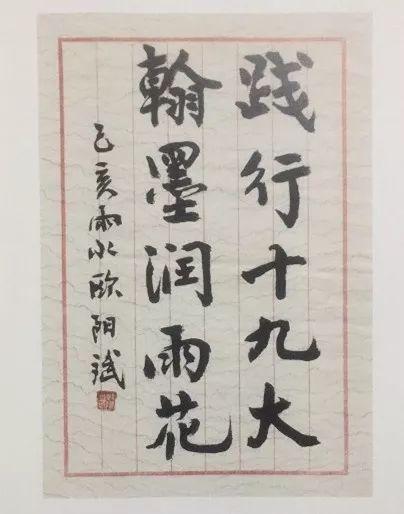 践行十九大
翰墨润雨花
己亥雨水欧阳斌